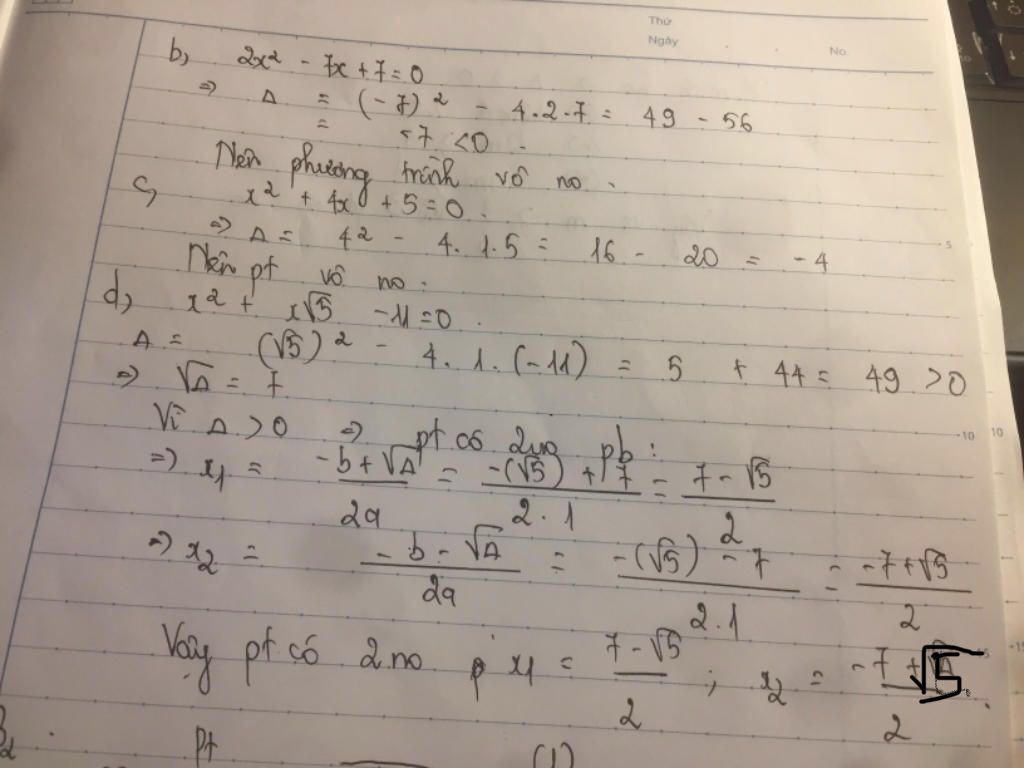 Thứ
Ngày
No.
b, 2x² - 7x + 7 = 0
⇒ Δ = (-7)² - 4.2.7 = 49 - 56
= -7 < 0.
Nên phương trình vô no.
c, x² + 4x + 5 = 0.
⇒ Δ = 4² - 4.1.5 = 16 - 20 = -4
Nên pt vô no.
d, x² + x√5 - 11 = 0.
Δ = (√5)² - 4.1.(-11) = 5 + 44 = 49 > 0
⇒ √Δ = 7
Vì Δ > 0 ⇒ pt có 2 no pb:
⇒ x₁ = (-b + √Δ)/2a = (-(√5) + 7)/2.1 = (7 - √5)/2
⇒ x₂ = (-b - √Δ)/2a = (-(√5) - 7)/2.1 = (-7 + √5)/2
Vậy pt có 2 no x₁ = (7 - √5)/2 ; x₂ = (-7 + √5)/2.
pt (1)